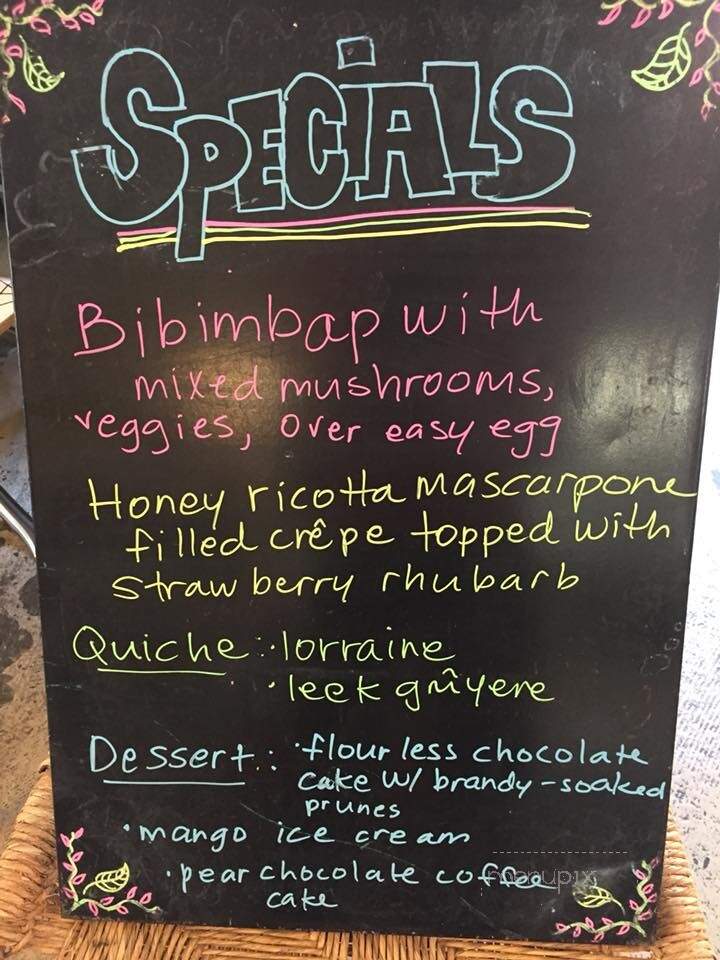 SPECIALS
Bibimbap with
mixed mushrooms,
veggies, over easy egg
Honey ricotta mascarpone
filled crêpe topped with
strawberry rhubarb
Quiche: · lorraine
· leek grûyere
Dessert: · flourless chocolate
cake w/ brandy-soaked
prunes
· mango ice cream
· pear chocolate coffee
cake
menupix